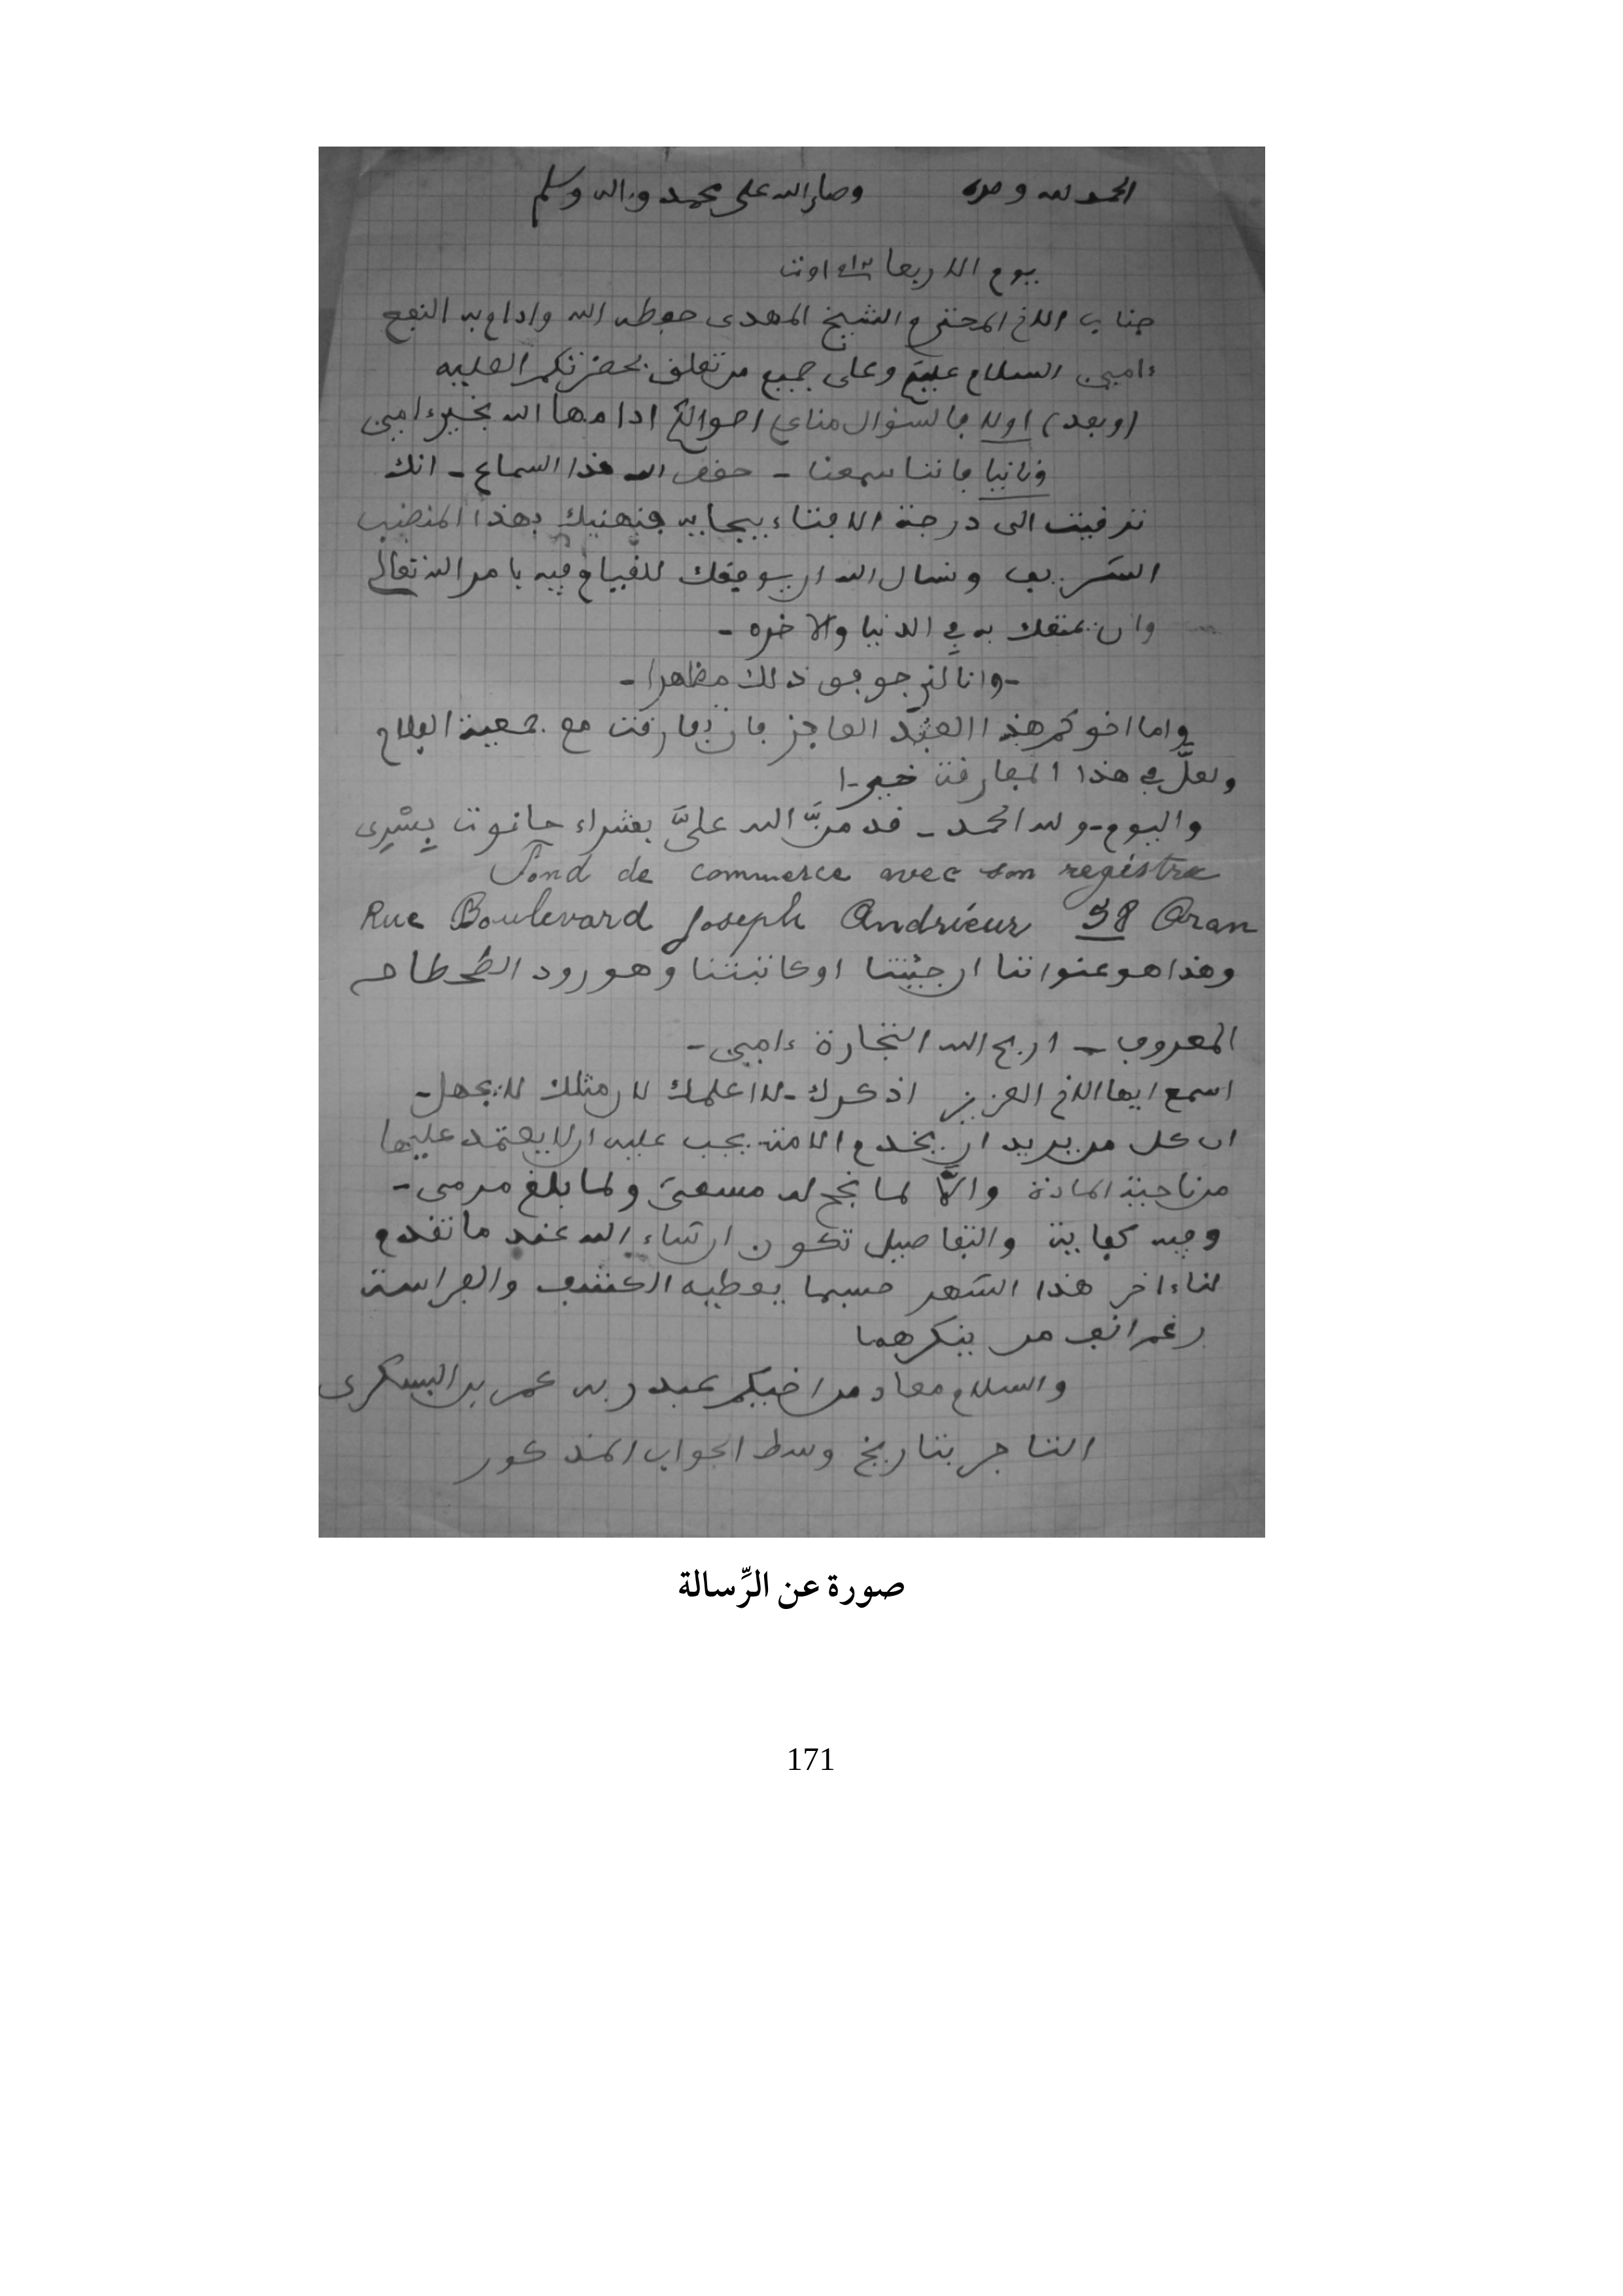 الحمد لله وحده وصلى الله على محمد وءاله وسلم
يوم الاربعا اوت
جناب الاخ المحترم الشيخ المهدى حفظه الله وادام به النفع
ءامين السلام عليكم وعلى جميع من تعلق بحضرتكم العليه
(وبعد) اولا فالسؤال منا عن احوالكم ادامها الله بخير ءامين
وثانيا فاننا سمعنا - حقق الله هذا السماع - انك
ترقيت الى درجة الافتاء ببجايه فنهنيك بهذا المنصب
الشريف ونسال الله ان يوفقك للقيام فيه بامر الله تعالى
وان يمتعك به في الدنيا والاخره -
- وانا لنرجو فوق ذلك مظهرا -
واما اخوكم هذا العبد العاجز فانه تفارقت مع جمعية الفلاح
ولعل في هذا المفارقت خيرا
واليوم - ولله الحمد - قد منَّ الله عليَّ بشراء حانوت بِشْرِى
Fond de commerce avec son registre
Rue Boulevard Joseph Andrieur 58 Oran
وهذا هو عنواننا ان جئتنا او كاتبتنا وهو رود الطحطاحـ
المعروف - اربح الله التجارة ءامين -
اسمع ايها الاخ العزيز اذكرك - لا اعلمك لان مثلك لا يجهل -
ان كل من يريد ان يخدم الامت يجب عليه ان لا يعتمد عليها
من ناحية المادة والاَّ لما نجح له مسعى ولما بلغ مرمى -
وفيه كفاية والتفاصيل تكون ان شاء الله عند ما تقدم
لنا ءاخر هذا الشهر حسبما يعطيه الكشف والفراسة
رغم انف من ينكرهما
والسلام معاد من اخيكم عبد ربه عمر بن البسكرى
التاجر بتاريخ وسط الجواب المذكور
صورة عن الرِّسالة
171